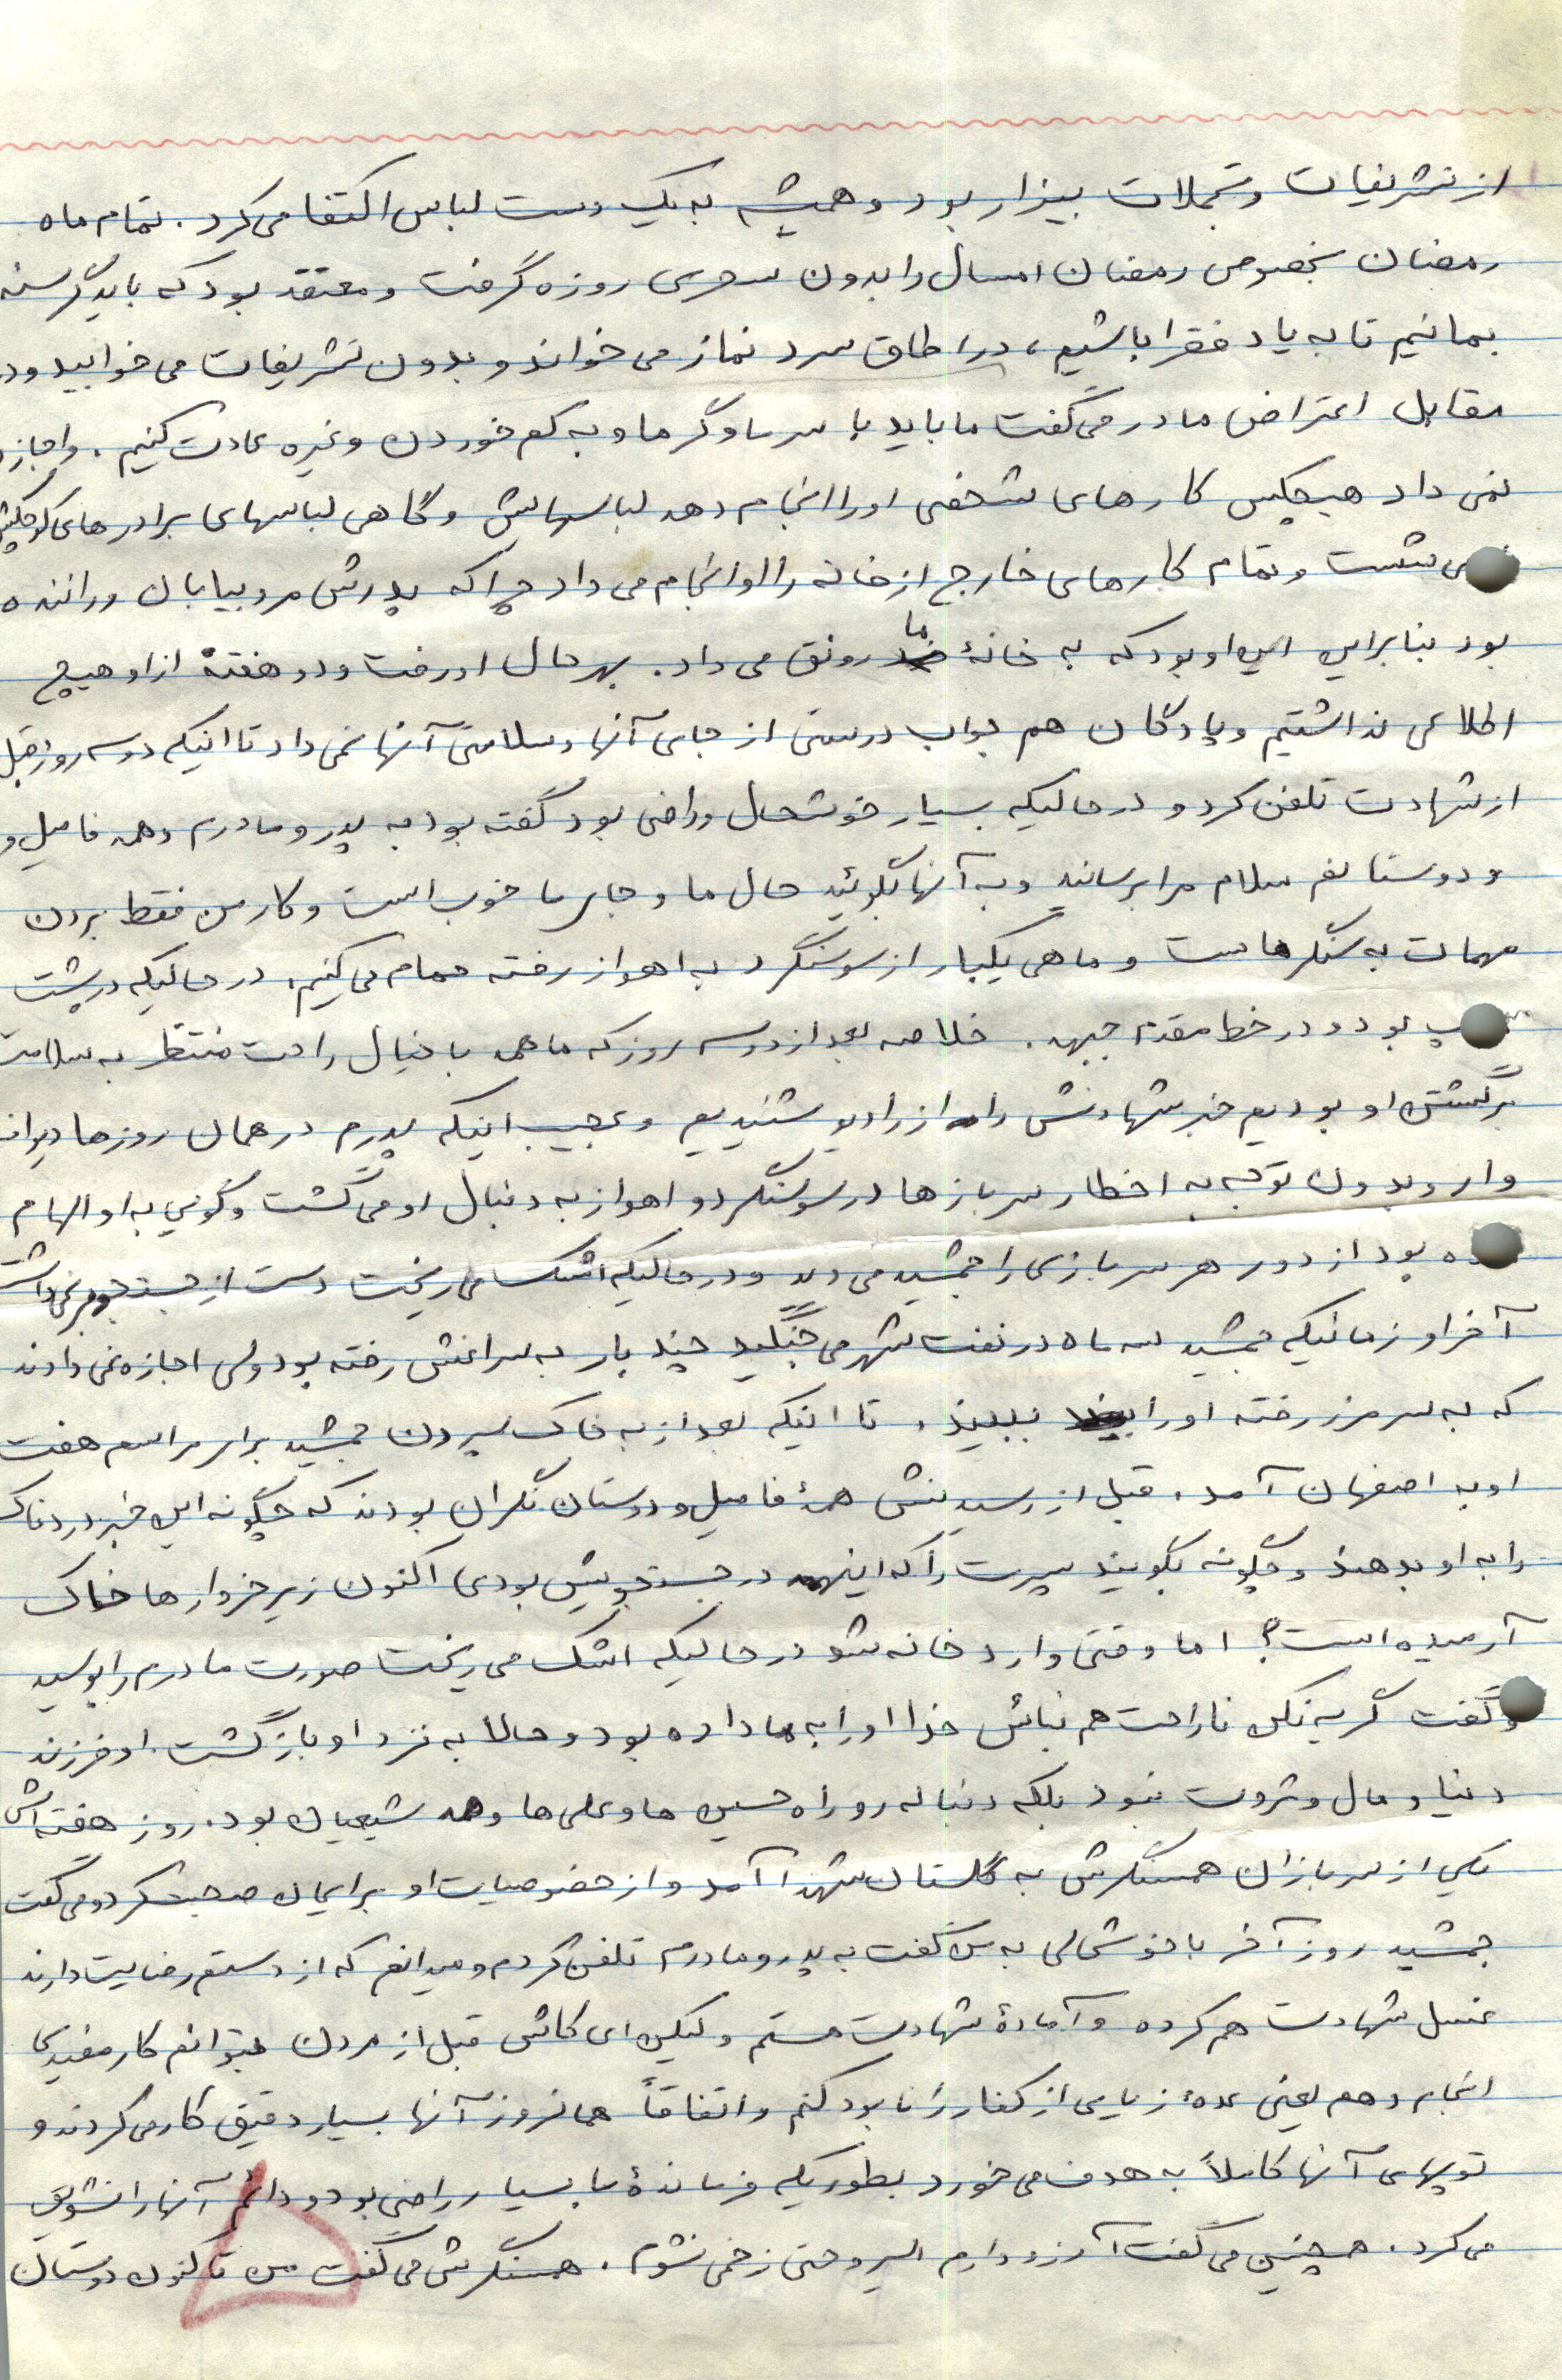 از تشریفات و تجملات بیزار بود و همیشه به یک دست لباس اکتفا می کرد. تمام ماه
رمضان بخصوص رمضان امسال را بدون سحری روزه گرفت و معتقد بود که باید گرسنه
بمانیم تا به یاد فقرا باشیم، در اطاق سرد نماز می خواند و بدون تشریفات می خوابید و در
مقابل اعتراض مادر می گفت ما باید با سرما و گرما و به کم خوردن و غیره عادت کنیم. و اجازه
نمی داد هیچکس کارهای شخصی او را انجام دهد لباسهایش و گاهی لباسهای برادرهای کوچکش
می شست و تمام کارهای خارج از خانه را او انجام می داد چرا که پدرش مرد بیابان و راننده
بود بنابراین این او بود که به خانهٔ ما رونق می داد. بهرحال او رفت و دو هفته از او هیچ
اطلاعی نداشتیم و پادگان هم جواب درستی از جای آنها و سلامتی آنها نمی داد تا اینکه دو سه روز قبل
از شهادت تلفن کرد و در حالیکه بسیار خوشحال و راضی بود گفته بود به پدر و مادرم و همه فامیل و
و دوستانم سلام مرا برسانید و به آنها بگوئید حال ما و جای ما خوب است و کار من فقط بردن
مهمات به سنگرهاست و ماهی یکبار از سوسنگرد به اهواز رفته حمام می کنیم، در حالیکه در پشت
توپ بود و در خط مقدم جبهه. خلاصه بعد از دو سه روز که ما همه با خیال راحت منتظر به سلامت
برگشتن او بودیم خبر شهادتش را از رادیو شنیدیم و عجیب اینکه پدرم در همان روزها دیوانه
وار و بدون توجه به اخطار سربازها در سوسنگرد و اهواز به دنبال او می گشت و گوئی به او الهام
شده بود از دور هر سربازی را جمشید می دید و در حالیکه اشک می ریخت دست از جستجو بر نمی داشت
آخر او زمانیکه جمشید سه ماه در نفت شهر می جنگید چند بار به سراغش رفته بود ولی اجازه نمی دادند
که به سر مرز رفته او را ببیند، تا اینکه بعد از به خاک سپردن جمشید برای مراسم هفت
او به اصفهان آمد. قبل از رسیدنش همهٔ فامیل و دوستان نگران بودند که چگونه این خبر دردناک
را به او بدهند و چگونه بگویند پسرت را که اینهمه در جستجویش بودی اکنون زیر خروارها خاک
آرمیده است؟ اما وقتی وارد خانه شد در حالیکه اشک می ریخت صورت مادرم را بوسید
و گفت گریه نکن ناراحت هم نباش خدا او را به ما داده بود و حالا به نزد او بازگشت. او فرزند
دنیا و مال و ثروت نبود بلکه دنباله رو راه حسین ها و علی ها و همه شیعیان بود. روز هفته اش
یکی از سربازان همسنگرش به گلستان شهدا آمد و از خصوصیات او برایمان صحبت کرد و می گفت
جمشید روز آخر با خوشحالی به من گفت به پدر و مادرم تلفن کردم و میدانم که از دستم رضایت دارند
غسل شهادت هم کرده و آمادهٔ شهادت هستم ولیکن ای کاش قبل از مردن بتوانم کار مفیدی
انجام دهم یعنی عدهٔ زیادی از کفار را نابود کنم و اتفاقاً همانروز آنها بسیار دقیق کار می کردند و
توپهای آنها کاملاً به هدف می خورد بطوریکه فرماندهٔ ما بسیار راضی بود و دائم آنها را تشویق
می کرد. همچنین می گفت آرزو دارم اسیر و حتی زخمی نشوم. همسنگرش می گفت من تا کنون دوستان